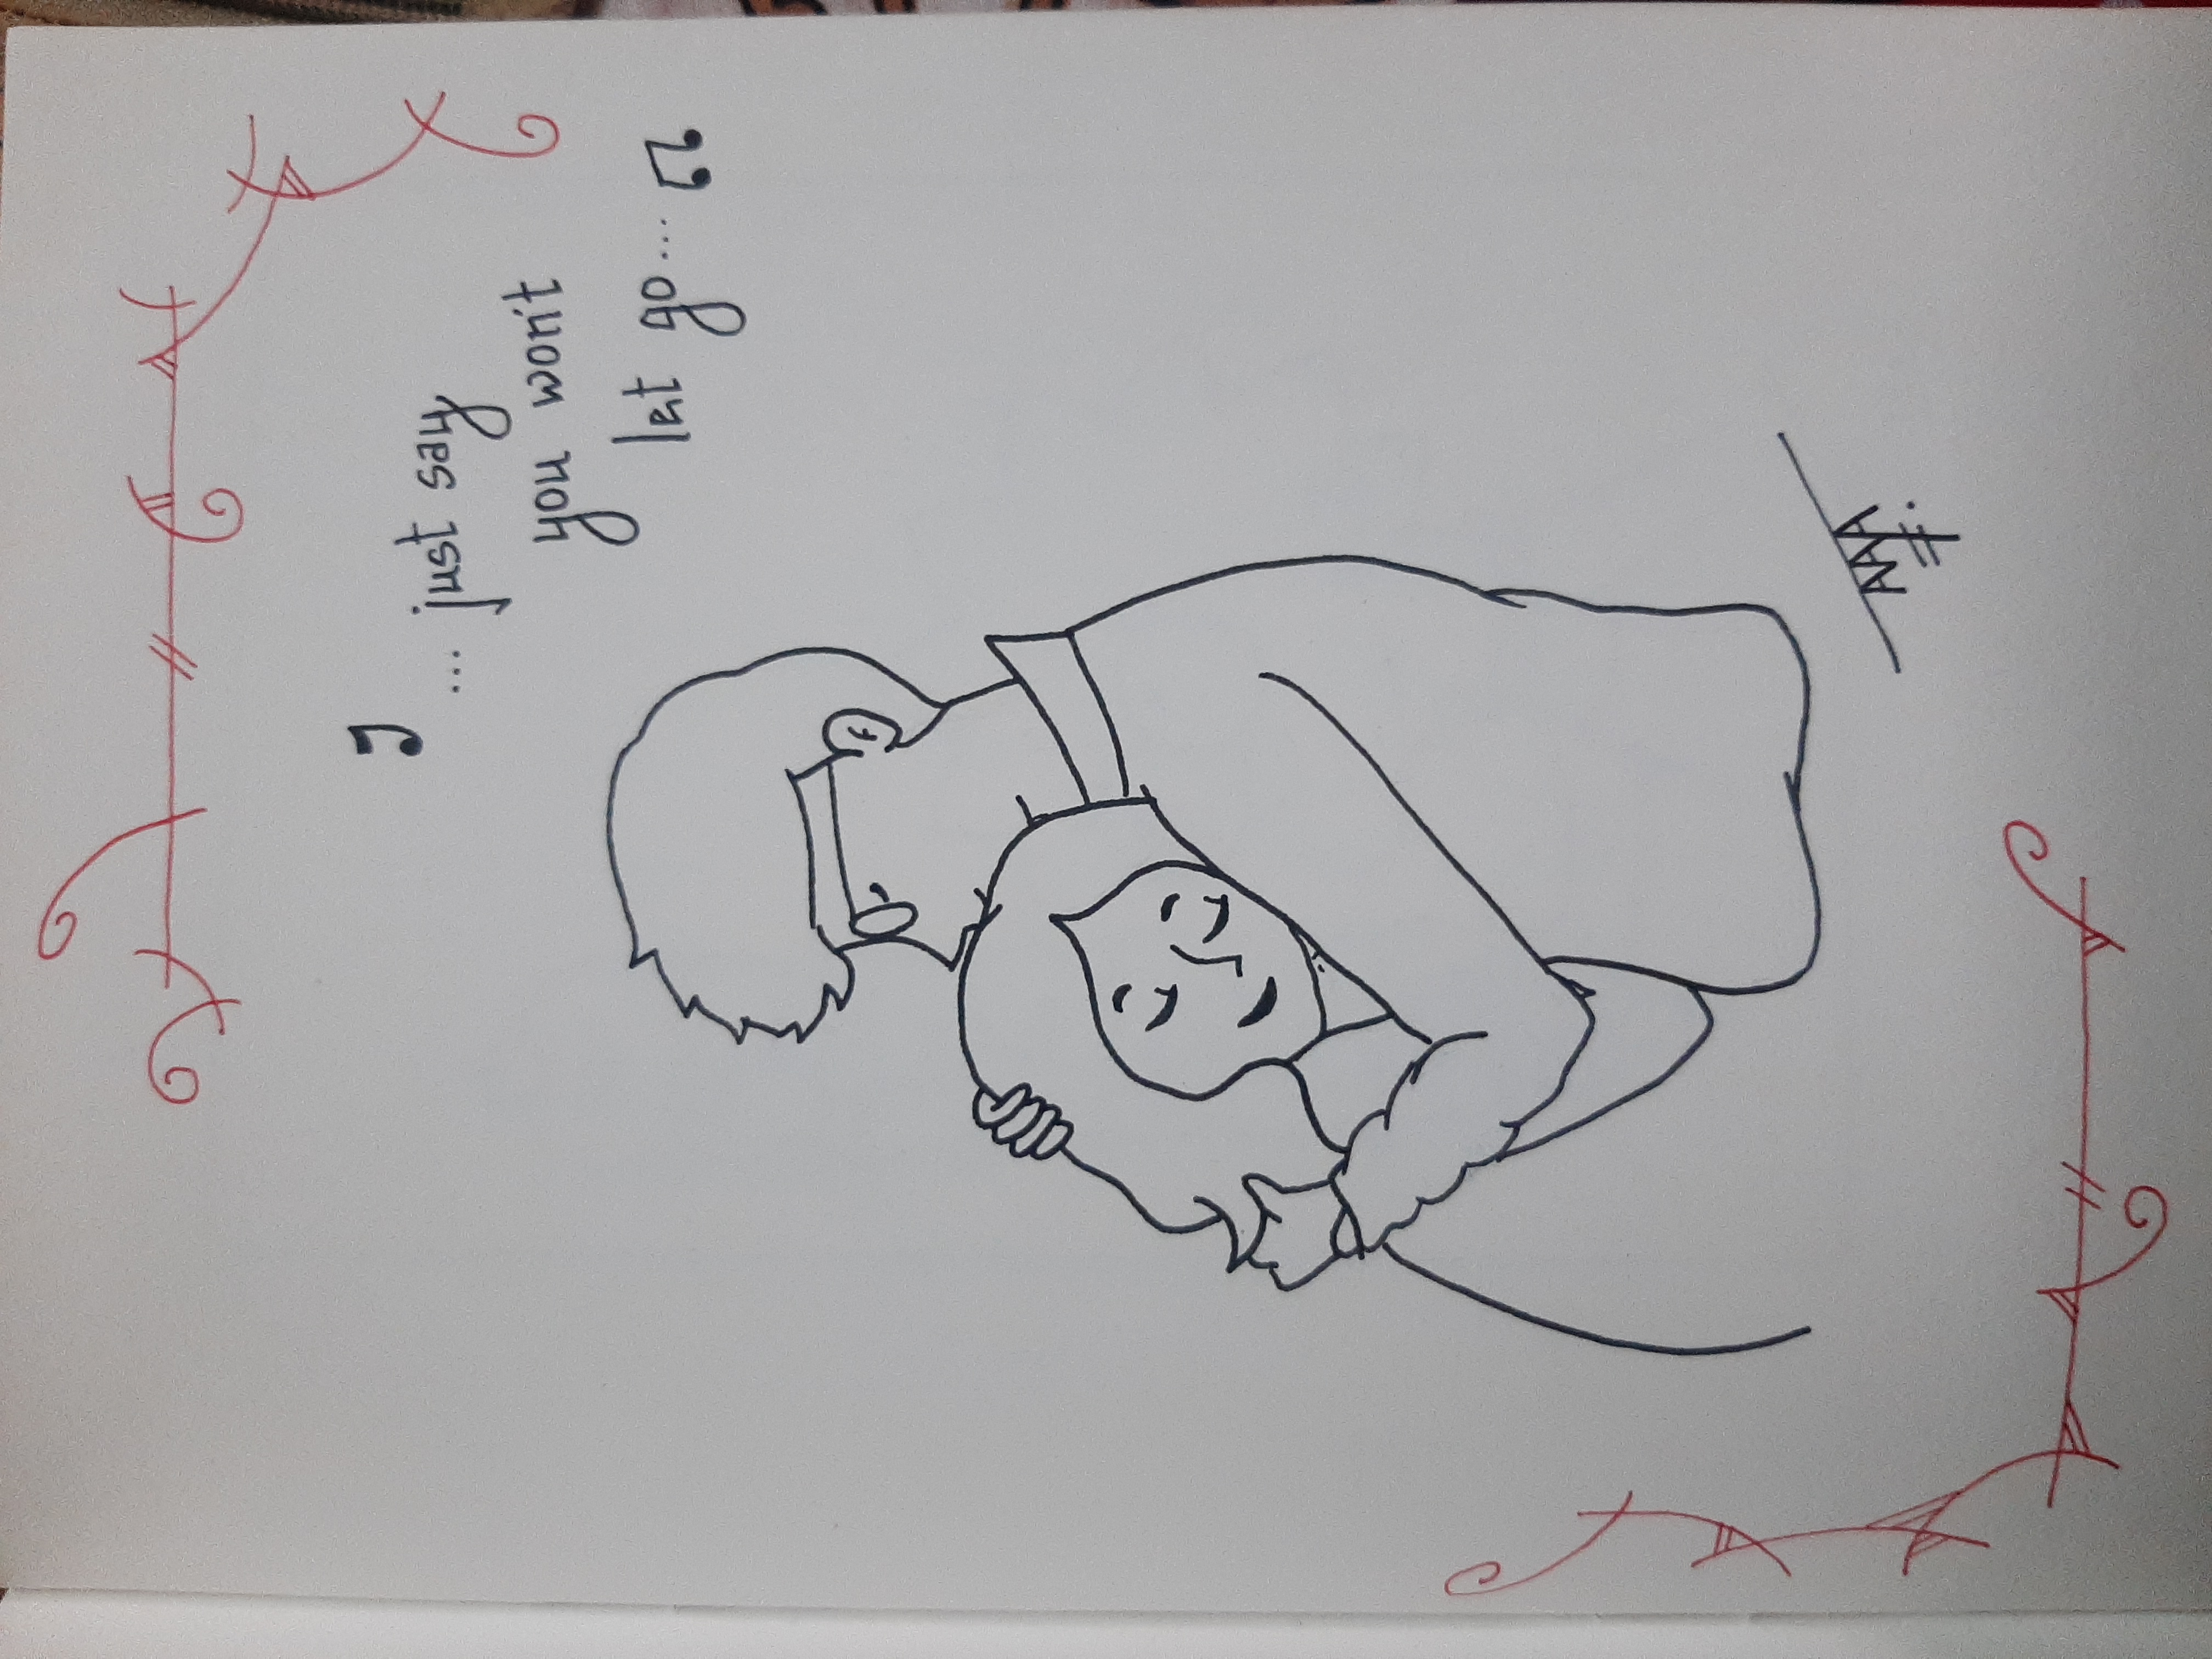 ... just say
you won't
let go...
AAA